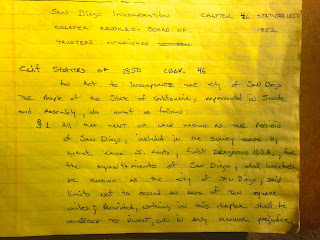 SAN DIEGO INCORPORATION CHAPTER 46 STATUTES
CREATED BOARD OF 1852
TRUSTEES
Calif STATUTES OF 1850 CHAP. 46
An Act to INCORPORATE THE city of SAN DIEGO
The People of the State of California, represented in Senate
and Assembly, do enact as follows:
§ 1 All that tract of land known as the
of San Diego, included in the survey made by
Lieut. Cave J. Couts, First Dragoons U.S.A., for
the of San Diego, shall henceforth
be known as the city of San Diego, said
limits not to exceed an area of ten square
miles; Provided, nothing in this chapter shall be
construed to divest, or in any manner prejudice